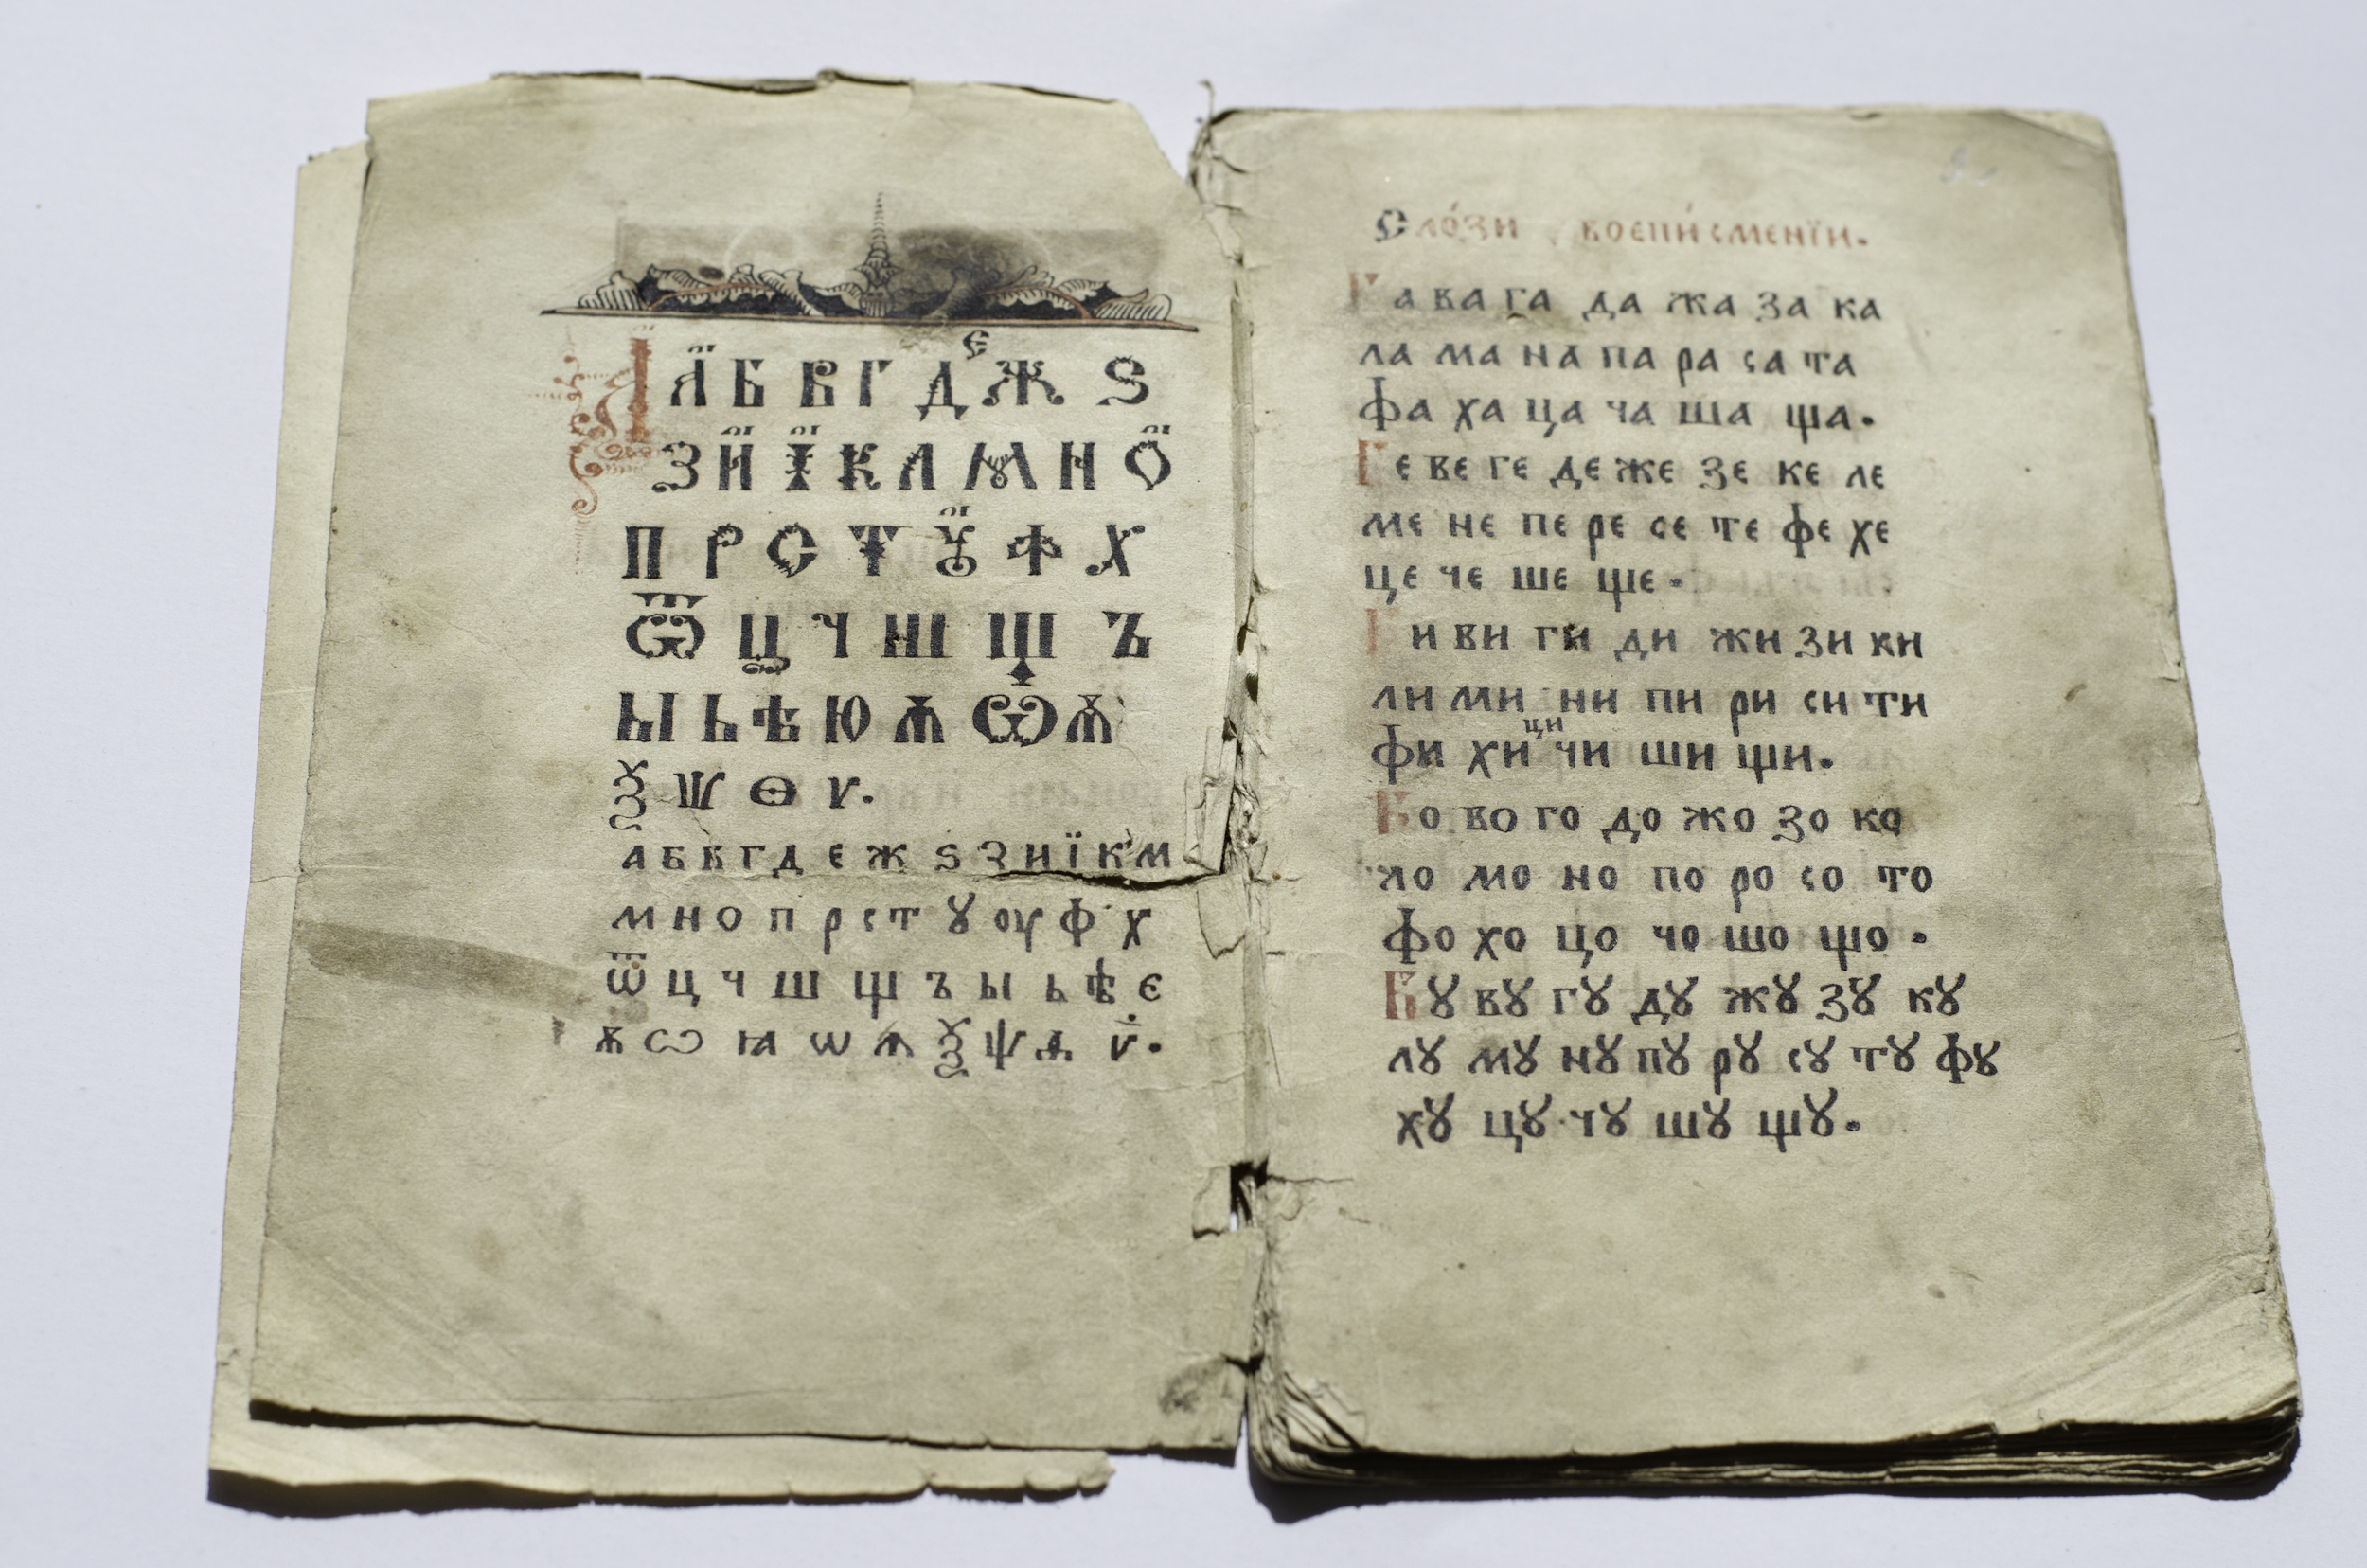 А А҆̈ Б В Г Д Е Ж Ѕ
З И҆̈ І҆̈ К Л М Н О҆̈
П Р С Т Ꙋ҆̈ Ф Х
Ѿ Ц Ч Ш Щ Ъ
Ы Ь Ѣ Ю Ѫ Ѽ Ѧ
Ѯ Ѱ Ѳ Ѵ.
а б в г д є ж ѕ з и ї к м
м н о п р с т ꙋ оу ф х
ѿ ц ч ш щ ъ ы ь ѣ є
ѫ ѡ ꙗ ѡ ѧ ѯ ѱ ѵ.
Сло́зи воєпи́сменїи.
Ба ва га да жа за ка
ла ма на па ра са та
фа ха ца ча ша ща.
Бє вє гє дє жє зє кє лє
мє нє пє рє сє тє фє хє
цє чє шє щє.
Би ви ги ди жи зи ки
ли ми ни пи ри си ти
фи хи ци чи ши щи.
Бо во го до жо зо ко
ло мо но по ро со то
фо хо цо чо шо що.
Бꙋ вꙋ гꙋ дꙋ жꙋ зꙋ кꙋ
лꙋ мꙋ нꙋ пꙋ рꙋ сꙋ тꙋ фꙋ
хꙋ цꙋ чꙋ шꙋ щꙋ.